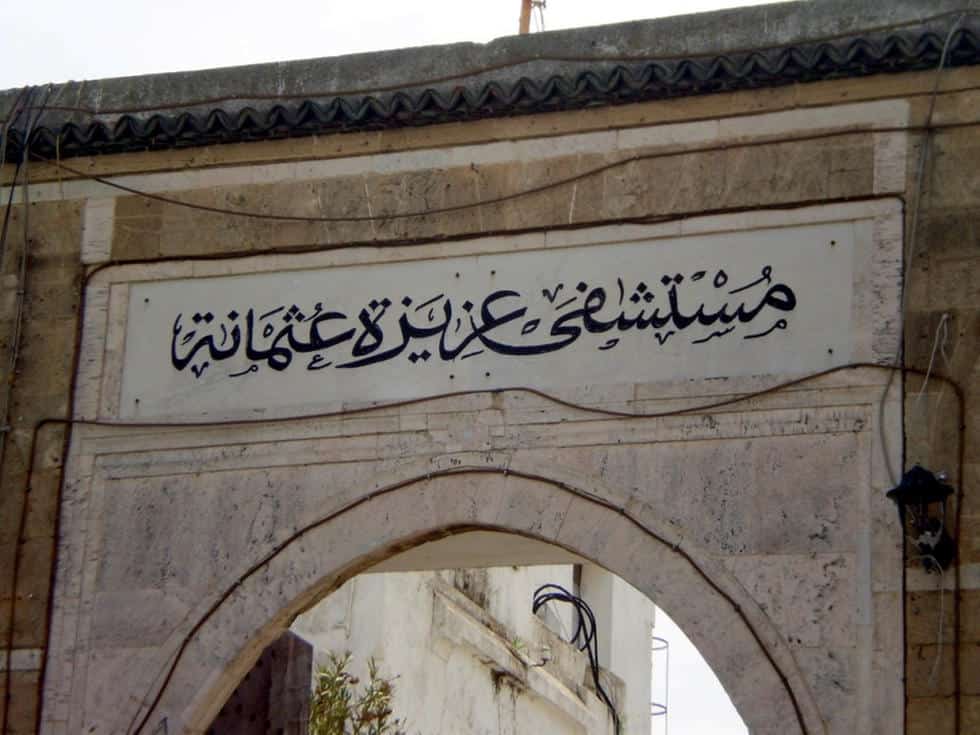 مُسْتشفىَ عزيزة عُثمانة